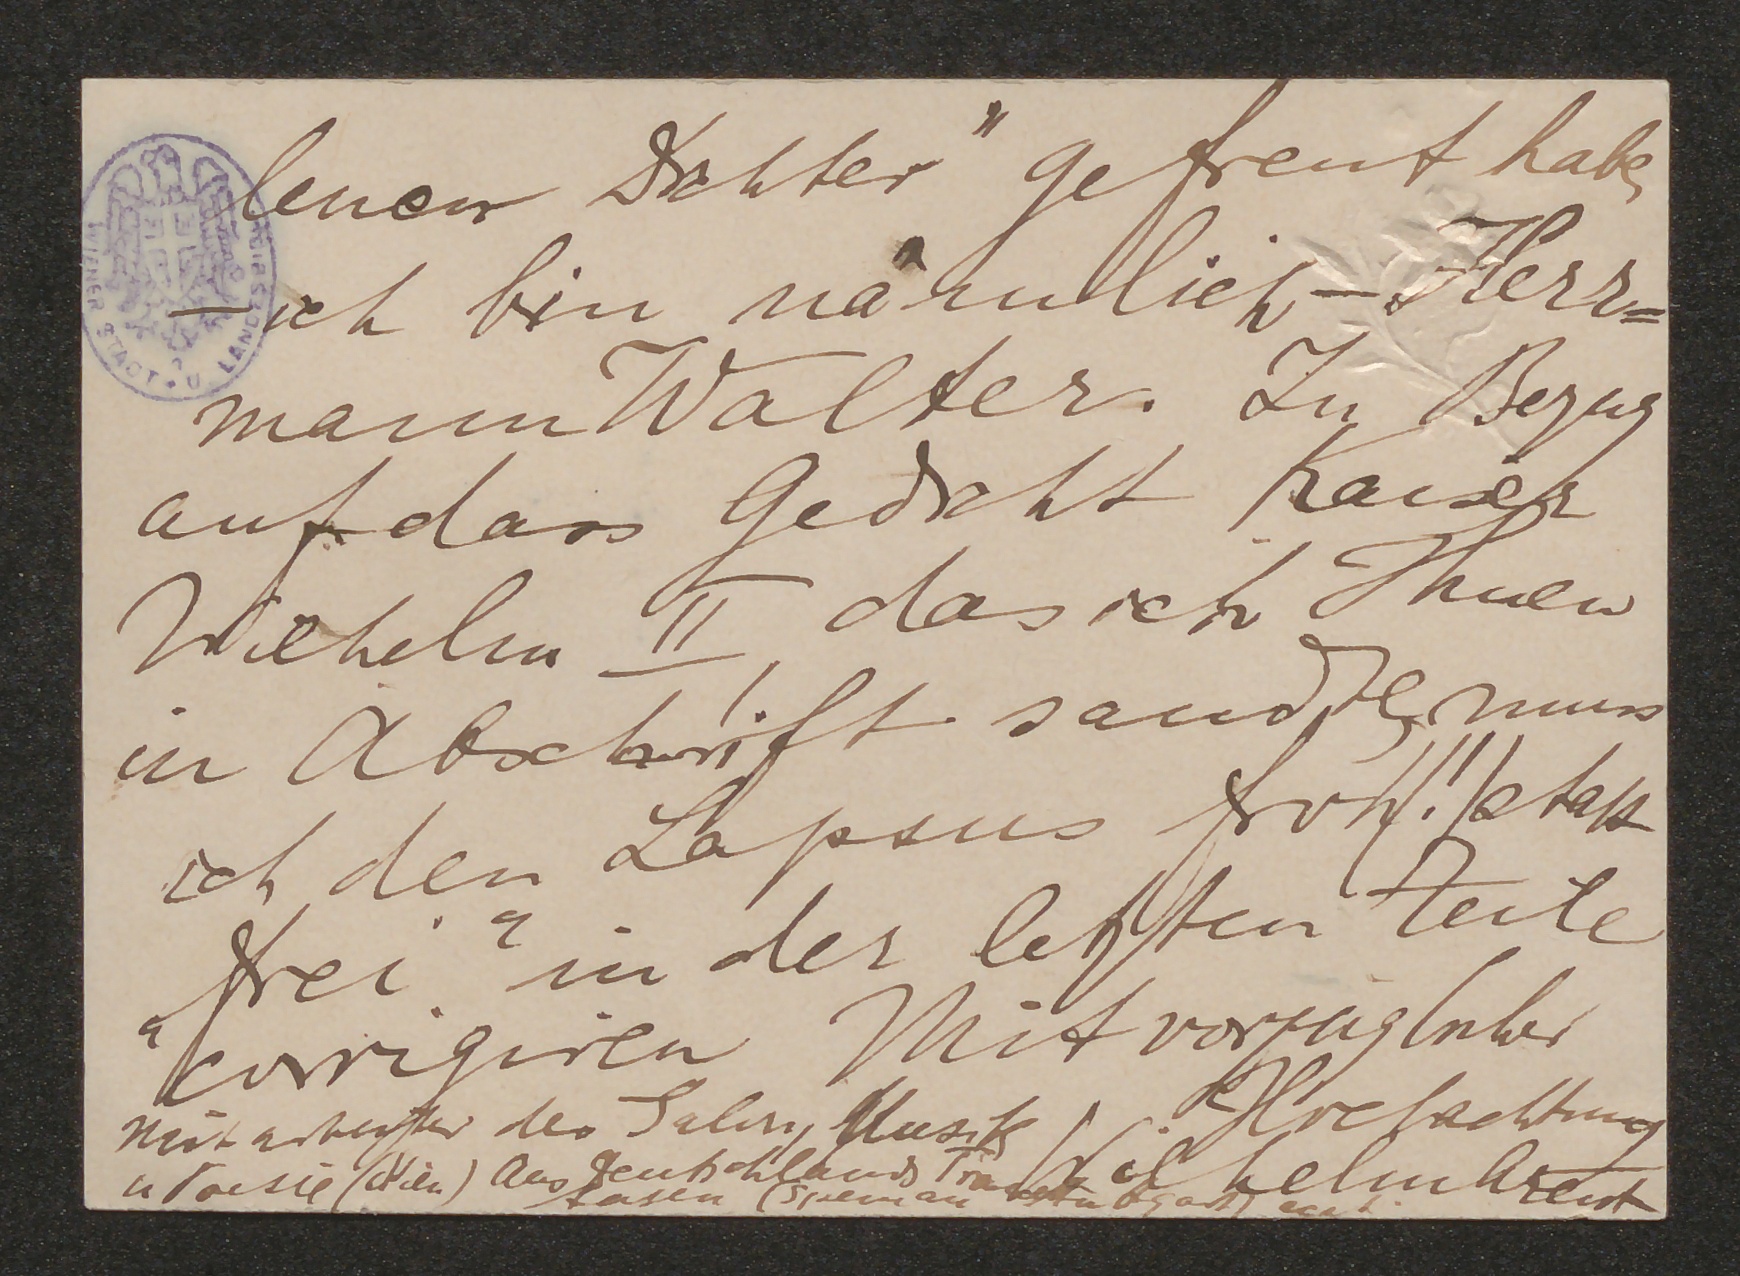 lenen Dichter" gefreut habe,
— ich bin nämlich — Herr=
mann Walter. In Bezug
auf dass Gedicht Kaiser
Wilhelm II, das ich Ihnen
in Abschrift sandte, muss
ich den Lapsus froh(!) statt
frei" in der letzten Zeile
"corrigiren Mit vorzüglicher
Hochachtung
Wilhelm Arent
Mitarbeiter des Salon, Musik
u Poesie (Wien) Aus Deutschlands
(Spemann Stuttgart) ect.
WIENER STADT • U. LANDESBIBLIOTHEK